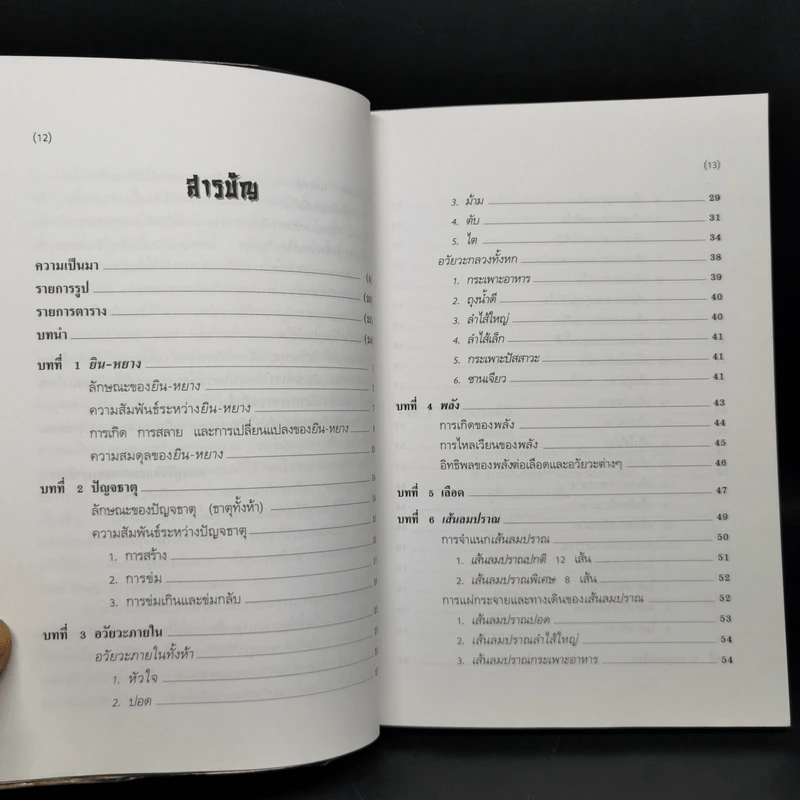 (12)
สารบัญ
ความเป็นมา
รายการรูป
รายการตาราง
บทนำ
บทที่ 1 ยิน-หยาง
ลักษณะของยิน-หยาง
ความสัมพันธ์ระหว่างยิน-หยาง
การเกิด การสลาย และการเปลี่ยนแปลงของยิน-หยาง
ความสมดุลของยิน-หยาง
บทที่ 2 ปัญจธาตุ
ลักษณะของปัญจธาตุ (ธาตุทั้งห้า)
ความสัมพันธ์ระหว่างปัญจธาตุ
1. การสร้าง
2. การข่ม
3. การข่มเกินและข่มกลับ
บทที่ 3 อวัยวะภายใน
อวัยวะภายในทั้งห้า
1. หัวใจ
2. ปอด
(13)
3. ม้าม 29
4. ตับ 31
5. ไต 34
อวัยวะกลวงทั้งหก 38
1. กระเพาะอาหาร 39
2. ถุงน้ำดี 40
3. ลำไส้ใหญ่ 40
4. ลำไส้เล็ก 41
5. กระเพาะปัสสาวะ 41
6. ซานเจียว 41
บทที่ 4 พลัง 43
การเกิดของพลัง 44
การไหลเวียนของพลัง 45
อิทธิพลของพลังต่อเลือดและอวัยวะต่างๆ 46
บทที่ 5 เลือด 47
บทที่ 6 เส้นลมปราณ 49
การจำแนกเส้นลมปราณ 50
1. เส้นลมปราณปกติ 12 เส้น 51
2. เส้นลมปราณพิเศษ 8 เส้น 52
การแผ่กระจายและทางเดินของเส้นลมปราณ 52
1. เส้นลมปราณปอด 53
2. เส้นลมปราณลำไส้ใหญ่ 54
3. เส้นลมปราณกระเพาะอาหาร 54